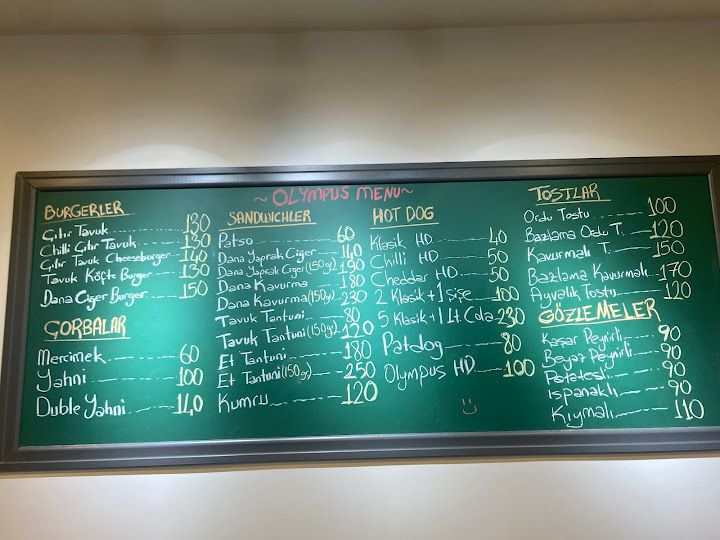 ~OLYMPUS MENU~
BURGERLER
Çıtır Tavuk 130
Chilli Çıtır Tavuk 130
Çıtır Tavuk Cheeseburger 140
Tavuk Köfte Burger 130
Dana Ciğer Burger 150
ÇORBALAR
Mercimek 60
Yahni 100
Duble Yahni 140
SANDWICHLER
Patso 60
Dana Yaprak Ciğer 140
Dana Yaprak Ciğer (150gr) 190
Dana Kavurma 180
Dana Kavurma (150gr) 230
Tavuk Tantuni 80
Tavuk Tantuni (150gr) 120
Et Tantuni 180
Et Tantuni (150gr) 250
Kumru 120
HOT DOG
Klasik HD 40
Chilli HD 50
Cheddar HD 50
2 Klasik + 1 Şişe 100
5 Klasik + 1 Lt. Cola 230
Patdog 80
Olympus HD 100
TOSTLAR
Ordu Tostu 100
Bazlama Ordu T. 120
Kavurmalı T. 150
Bazlama Kavurmalı 170
Ayvalık Tostu 120
GÖZLEMELER
Kaşar Peynirli 90
Beyaz Peynirli 90
Patatesli 90
Ispanaklı 90
Kıymalı 110